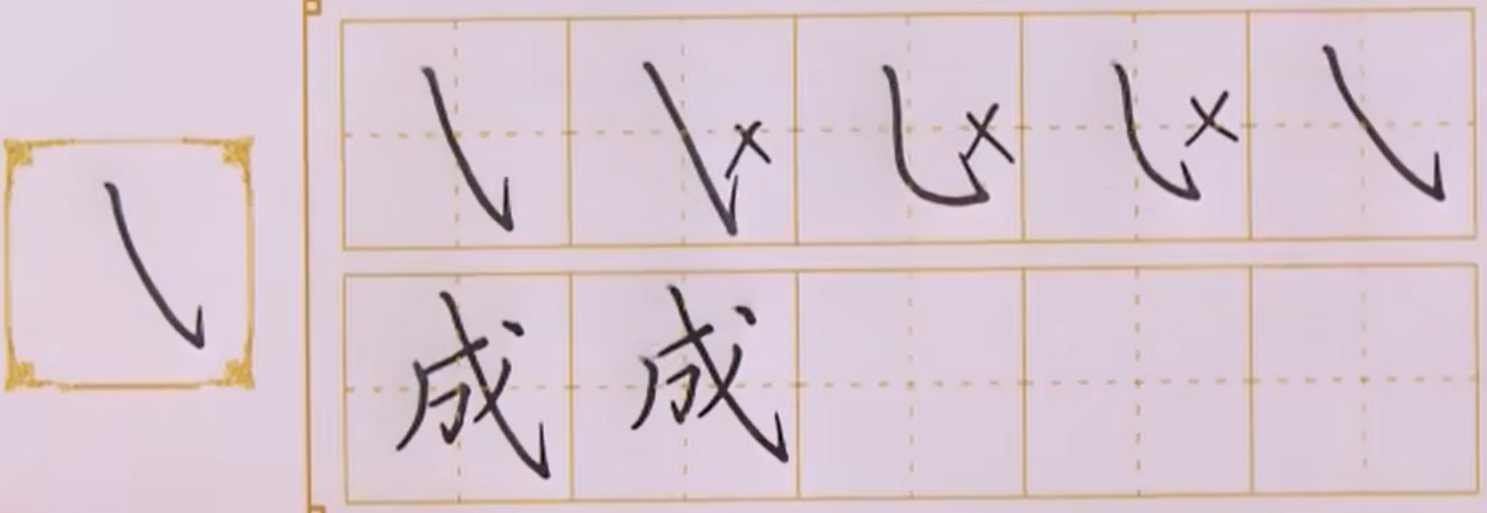 ㇂ ㇂ ㇂ × ㇂ × ㇂ × ㇂
成 成